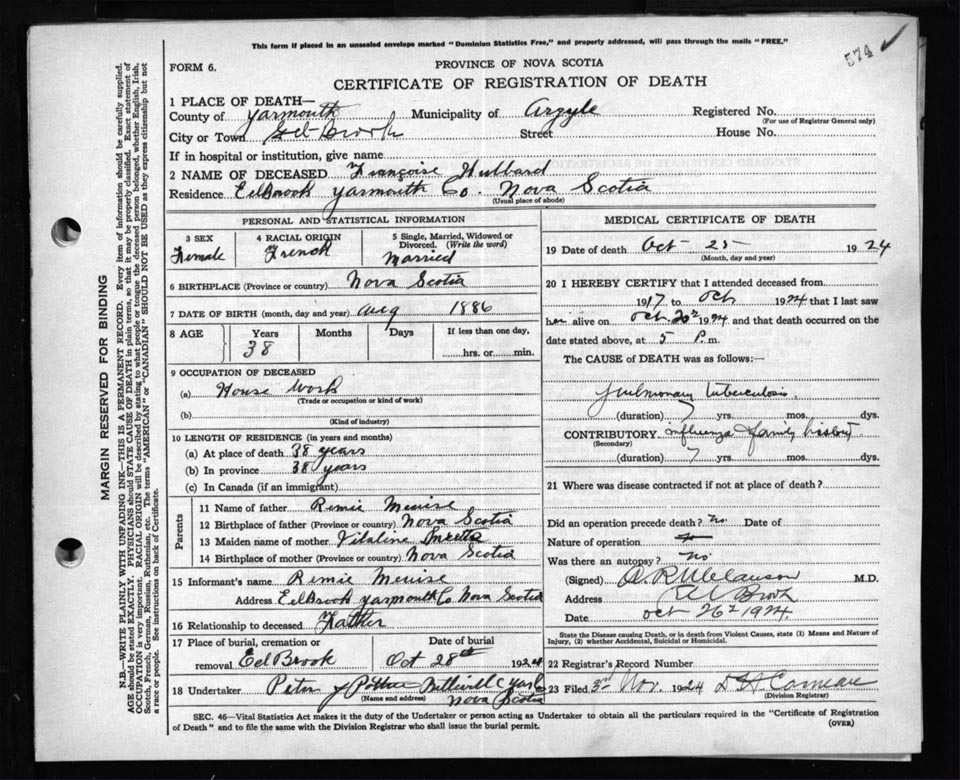 This form if placed in an unsealed envelope marked "Dominion Statistics Free," and properly addressed, will pass through the mails "FREE."
574
FORM 6.
PROVINCE OF NOVA SCOTIA
CERTIFICATE OF REGISTRATION OF DEATH
1 PLACE OF DEATH—
County of Yarmouth Municipality of Argyle Registered No.
(For use of Registrar General only)
City or Town Eel Brook Street House No.
If in hospital or institution, give name
2 NAME OF DECEASED Françoise Hubbard
Residence EelBrook Yarmouth Co. Nova Scotia
(Usual place of abode)
PERSONAL AND STATISTICAL INFORMATION
3 SEX 4 RACIAL ORIGIN 5 Single, Married, Widowed or Divorced. (Write the word)
Female French Married
6 BIRTHPLACE (Province or country) Nova Scotia
7 DATE OF BIRTH (month, day and year) Aug 1886
8 AGE Years Months Days If less than one day,
38 hrs. or min.
9 OCCUPATION OF DECEASED
(a) House Work
(Trade or occupation or kind of work)
(b)
(Kind of industry)
10 LENGTH OF RESIDENCE (in years and months)
(a) At place of death 38 years
(b) In province 38 years
(c) In Canada (if an immigrant)
Parents
11 Name of father Remie Meuise
12 Birthplace of father (Province or country) Nova Scotia
13 Maiden name of mother Vitaline
14 Birthplace of mother (Province or country) Nova Scotia
15 Informant's name Remie Meuise
Address EelBrook Yarmouth Co. Nova Scotia
16 Relationship to deceased Father
17 Place of burial, cremation or removal Eel Brook
Date of burial Oct 28th 1924
18 Undertaker Peter
(Name and address) Nova Scotia
MEDICAL CERTIFICATE OF DEATH
19 Date of death Oct 25 1924
(Month, day and year)
20 I HEREBY CERTIFY that I attended deceased from
1917 to Oct 1924 that I last saw
her alive on Oct. 1924 and that death occurred on
date stated above, at 5 P.m.
The CAUSE of DEATH was as follows:—
Pulmonary tuberculosis
(duration) 7 yrs. mos. dys.
CONTRIBUTORY Influenza family history
(Secondary)
(duration) 7 yrs. mos. dys.
21 Where was disease contracted if not at place of death?
Did an operation precede death? No Date of
Nature of operation
Was there an autopsy? No
(Signed) M.D.
Address Eel Brook
Date Oct 26 1924.
State the Disease causing Death, or in death from Violent Causes, state (1) Means and Nature of Injury, (2) whether Accidental, Suicidal or Homicidal.
22 Registrar's Record Number
23 Filed 3rd Nov. 1924 D A Comeau
(Division Registrar)
SEC. 46—Vital Statistics Act makes it the duty of the Undertaker or person acting as Undertaker to obtain all the particulars required in the "Certificate of Registration
of Death" and to file the same with the Division Registrar who shall issue the burial permit.
(OVER)
MARGIN RESERVED FOR BINDING
N.B.—WRITE PLAINLY WITH UNFADING INK—THIS IS A PERMANENT RECORD. Every item of information should be carefully supplied.
AGE should be stated EXACTLY. PHYSICIANS should STATE CAUSE OF DEATH in plain terms, so that it may be properly classified. Exact statement of
OCCUPATION is very important. RACIAL ORIGIN will be described by stating to what people or tongue the deceased person belonged, whether English, Irish,
Scotch, French, German, Russian, Ruthenian, etc. The terms "AMERICAN" or "CANADIAN" SHOULD NOT BE USED as they express citizenship but not
a race or people. See instructions on back of Certificate.